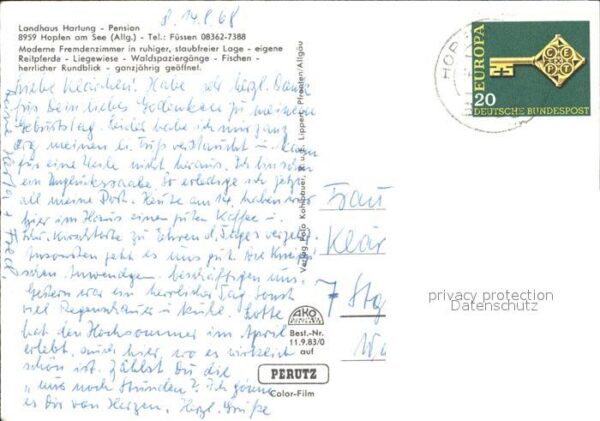 8. 14.8.68
Landhaus Hartung - Pension
8959 Hopfen am See (Allg.) - Tel.: Füssen 08362-7388
Moderne Fremdenzimmer in ruhiger, staubfreier Lage - eigene
Reitpferde - Liegewiese - Waldspaziergänge - Fischen -
herrlicher Rundblick - ganzjährig geöffnet.
Liebe Klärchen! Habe herzl. Dank
für Dein liebes Gedenken zu meinem
Geburtstag. Leider habe ich mir ganz
arg meinen Fuß verstaucht u. kann
für eine Weile nicht heraus. Ich bin schon
ein Unglücksrabe. So erledige ich jetzt
all meine Post. Heute am 14. haben wir
hier im Haus einen guten Kaffee u.
zu Ehren d. Tages
Ansonsten geht es uns gut. die Kneipp-
schen Anwendgen. beschäftigen uns.
Gestern war ein herrlicher Tag sonst
viel Regenschauer u. kühl. Lotte
hat den Hochsommer im April
erlebt, auch hier, wo es wirklich
schön ist. Zählst Du die
"nur noch Stunden"? Ich gönne
es Dir von Herzen. Herzl. Grüße
Verlag Foto Kohlbauer, K. u. E. Lippert, Pfronten/Allgäu
AKO
Best.-Nr.
11.9.83/0
auf
PERUTZ
Color-Film
HOP
EUROPA
CEPT
20
DEUTSCHE BUNDESPOST
Frau
Klär
7 Stg
privacy protection
Datenschutz